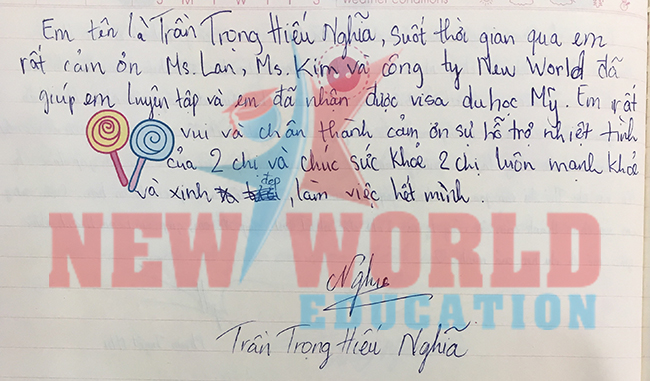 Em tên là Trần Trọng Hiếu Nghĩa, suốt thời gian qua em
rất cảm ơn Ms. Lan, Ms. Kim và công ty New World đã
giúp em luyện tập và em đã nhận được visa du học Mỹ. Em rất
vui và chân thành cảm ơn sự hỗ trợ nhiệt tình
của 2 chị và chúc sức khỏe 2 chị luôn mạnh khỏe
và xinh đẹp, làm việc hết mình.
NEW WORLD
EDUCATION
Nghĩa
Trần Trọng Hiếu Nghĩa